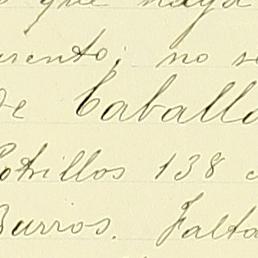 que haya
no
de Caballo
Potrillos 138
Burros. Falta